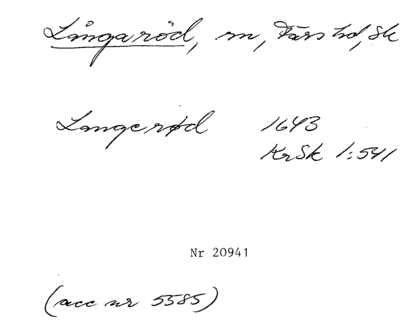 Långaröd, sn, Färs hd, Sk
Langerød 1643
KrSk 1:541
Nr 20941
(acc nr 5585)